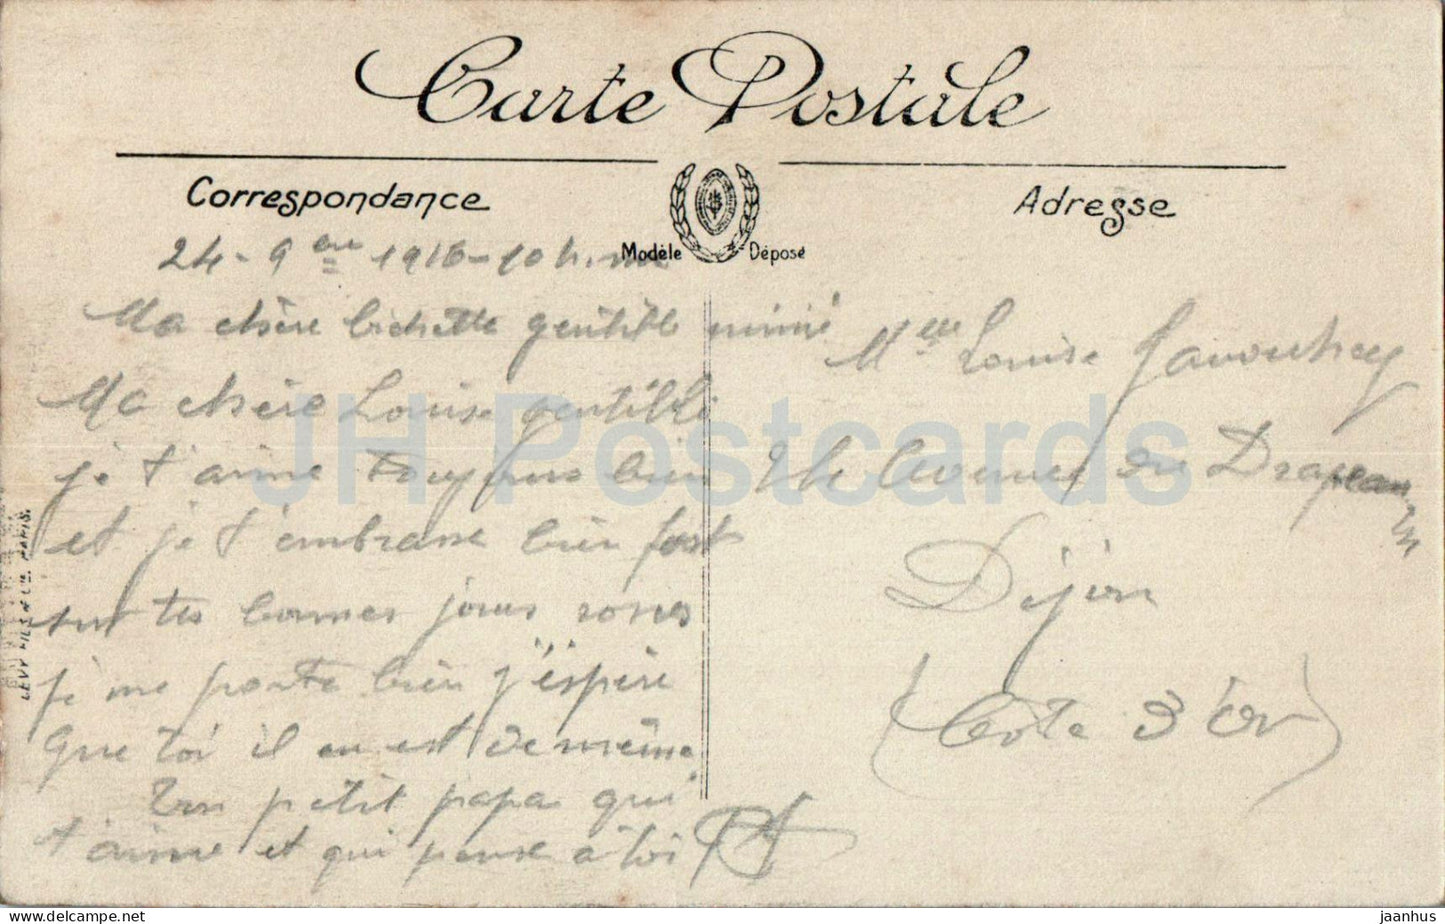 Carte Postale
Correspondance
Adresse
Modèle Déposé
24 - 9 bre 1916 - 10 h. m
Ma chère bichette gentille mimi
Ma chère Louise gentille
je t'aime toujours bien
et je t'embrasse bien fort
sur tes bonnes joues roses
je me porte bien j'espère
que toi il en est de même
Ton petit papa qui
t'aime et qui pense à toi
Melle Louise
24 Avenue du Drapeau
Dijon
(Côte d'Or)
LEVY FILS & Cie PARIS.
JH Postcards
delcampe.net
jaanhus